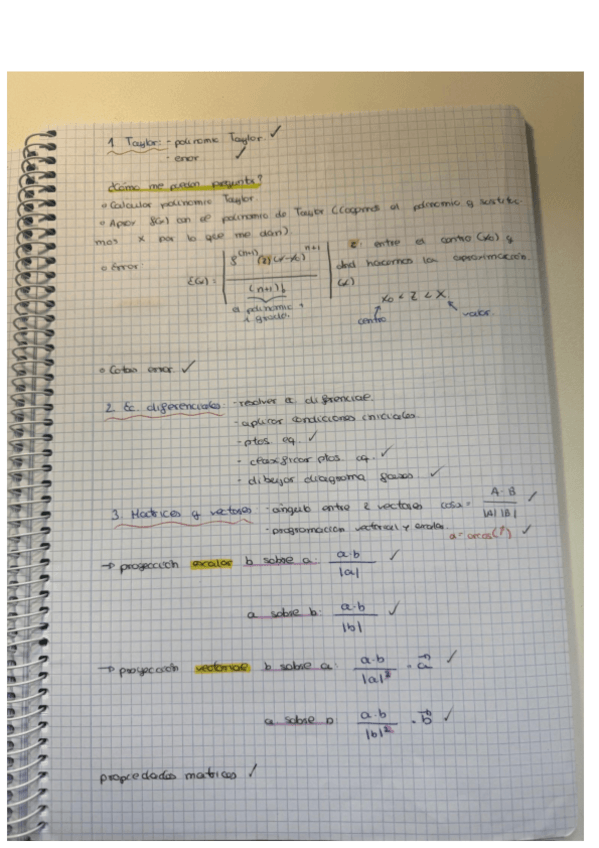 1. Taylor: - polinomio Taylor. ✓
- error ✓
¿Cómo me pueden preguntar?
• Calcular polinomio Taylor
• Aprox f(x) con el polinomio de Taylor (Cogemos el polinomio y sustitui-
mos x por lo que me dan).
• Error: E(x) = | f^(n+1) (z) (x-x₀)^(n+1) / (n+1)! | z: entre el centro (x₀) y
dnd hacemos la aproximación.
(x)
x₀ < z < x
el polinomio +
1 grado.
centro valor.
• Cotas error. ✓
2. Ec. diferenciales: - resolver ec diferencial.
- aplicar condiciones iniciales.
- ptos eq. ✓
- clasificar ptos. eq. ✓
- dibujar diagrama fases ✓
3. Matrices y vectores - ángulo entre 2 vectores cosα = A·B / |A| |B| ✓
- programación vectorial y escalar. α = arcos(?) ✓
→ proyección escalar b sobre a: a·b / |a| ✓
a sobre b: a·b / |b| ✓
→ proyección vectorial b sobre a: a·b / |a|² · a⃗ ✓
a sobre b a·b / |b|² · b⃗ ✓
propiedades matrices ✓